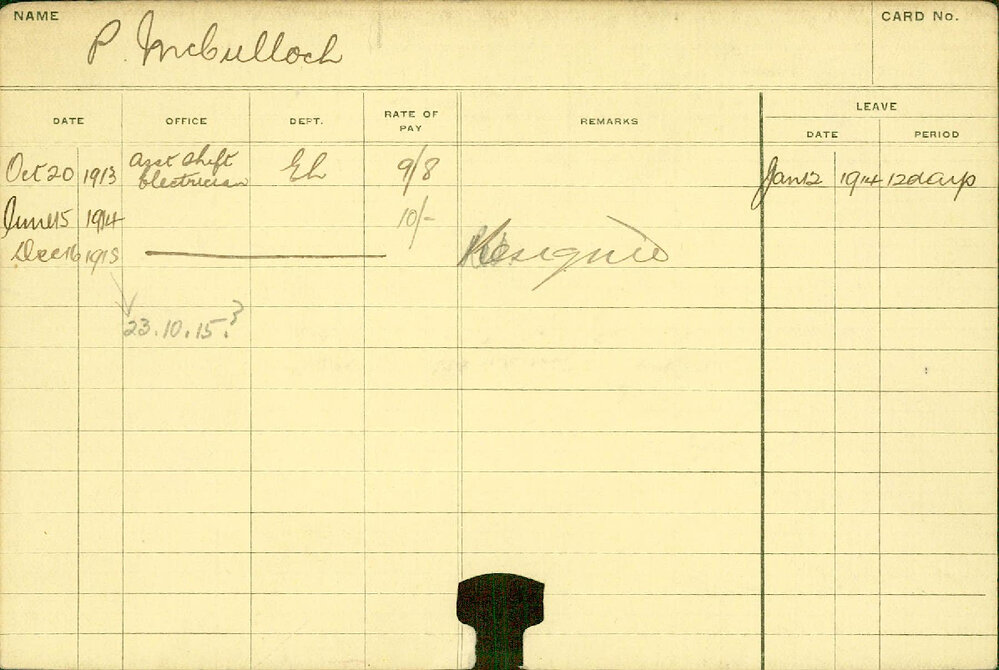 NAME
P. McCulloch
CARD No.
DATE OFFICE DEPT. RATE OF PAY REMARKS LEAVE
DATE PERIOD
Oct 20 1913 Asst Shift Electrician El 9/8 Jan 12 1914 12 days
June 15 1914 10/-
Dec 16 1915 Resigned
23.10.15.?